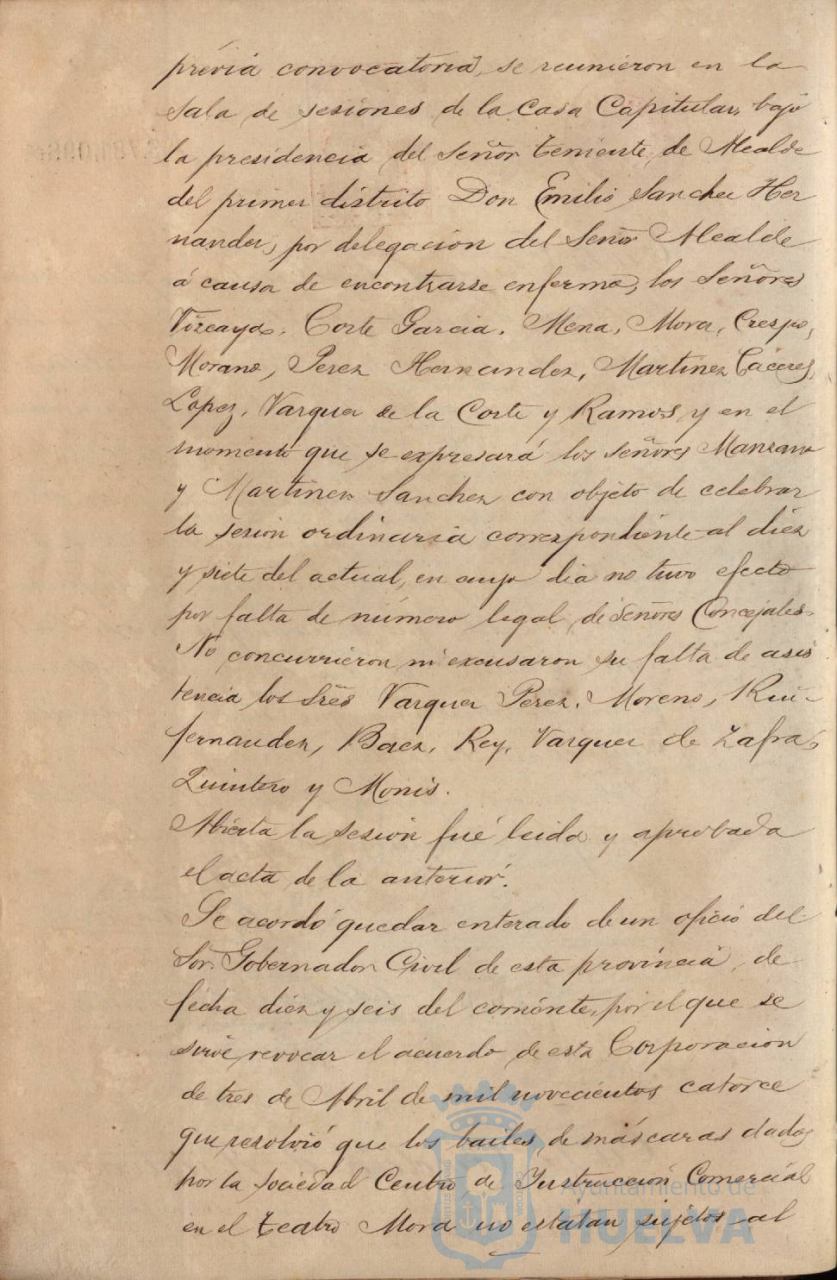 prévia convocatoria, se reunieron en la
Sala de sesiones de la Casa Capitular, bajo
la presidencia del Señor Teniente de Alcalde
del primer distrito Don Emilio Sanchez Her
nandez, por delegacion del Señor Alcalde
á causa de encontrarse enfermo, los Señores
Vizcaya, Corte Garcia, Mena, Mora, Crespo,
Morano, Perez Hernandez, Martinez Cáceres,
Lopez, Vazquez de la Corte y Ramos, y en el
momento que se expresará los Señores Manzano
y Martinez Sanchez con objeto de celebrar
la sesion ordinaria correspondiente al diez
y siete del actual, en cuyo dia no tuvo efecto
por falta de número legal de Señores Concejales.
No concurrieron ni excusaron su falta de asis
tencia los Sres Vazquez Perez, Moreno, Ruiz
fernandez, Baez, Rey, Vazquez de Zafra,
Quintero y Monis.
Abierta la sesion fué leida y aprobada
el acta de la anterior.
Se acordó quedar enterado de un oficio del
Sor. Gobernador Civil de esta provincia, de
fecha diez y seis del corriente, por el que se
sirve revocar el acuerdo de esta Corporacion
de tres de Abril de mil novecientos catorce
que resolvió que los bailes de máscaras dados
por la sociedad Centro de Instruccion Comercial
en el Teatro Mora no estatan sujetos al
Ayuntamiento de
HUELVA